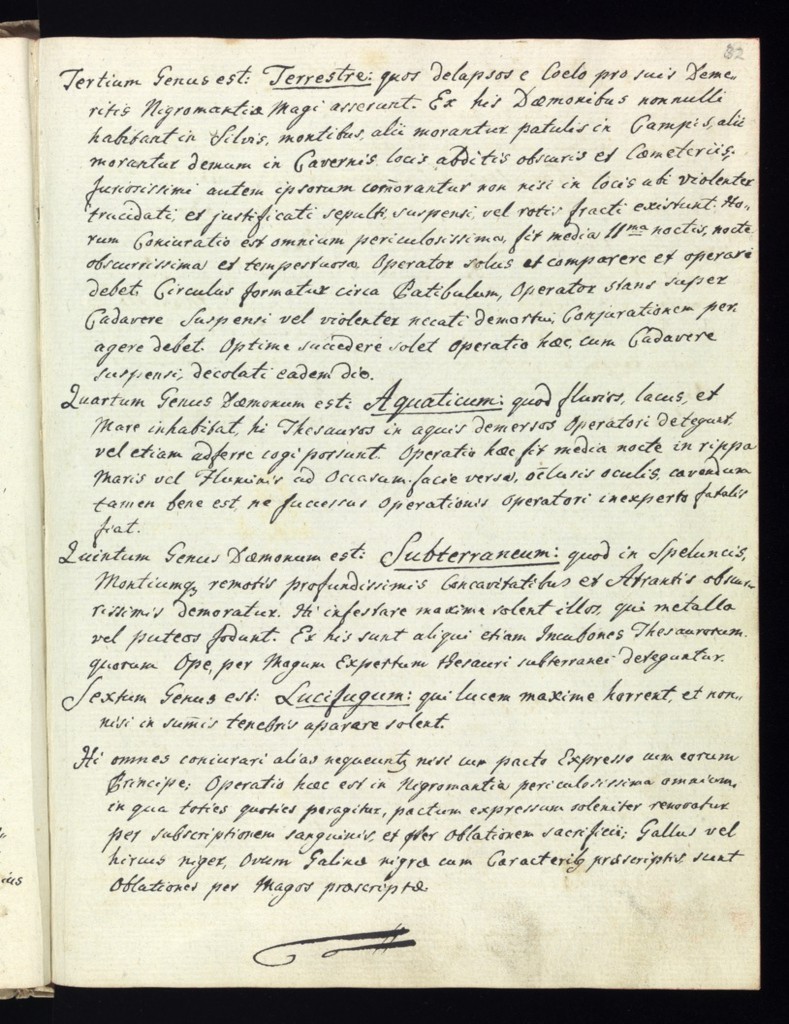 32
Tertium Genus est: Terrestre: quos delapsos e Coelo pro suis Deme-
ritis Nigromantiæ Magi asserunt. Ex his Dæmonibus nonnulli
habitant in Silvis, montibus, alii morantur patulis in Campis, alii
morantur demum in Cavernis, locis abditis obscuris et Cœmeteriis.
furiosissimi autem ipsorum com̄orantur non nisi in locis, ubi violenter
trucidati, et justificati sepulti, suspensi, vel rotis fracti existunt. Ho-
rum Coniuratio est omnium periculosissima, fit media 11ma noctis, nocte
obscurrissima et tempestuosa. Operator solus et comparere et operari
debet. Circulus formatur circa Patibulum, Operator stans super
Cadavere Suspensi vel violenter necati demortui, Conjurationem per-
agere debet. Optime succedere solet operatio hæc, cum Cadavere
suspensi, decolati eadem die.
Quartum Genus Dæmonum est: Aquaticum: quod fluvios, lacus, et
Mare inhabitat, hi Thesauros in aquis demersos Operatori detegunt,
vel etiam adferre cogi possunt. Operatio hæc fit media nocte in rippa
Maris vel Fluminis ad Occasum facie versa, oc̄lusis oculis, cavendum
tamen bene est, ne successus Operationis Operatori inexperto fatalis
fiat.
Quintum Genus Dæmonum est: Subterraneum: quod in Speluncis,
Montiumq remotis profundissimis Concavitatibus et Atrantis obscu-
rissimis demoratur. Hi infestare maxime solent illos, qui metalla
vel puteos fodunt. Ex his sunt aliqui etiam Incubones Thesaurorum.
quorum Ope, per Magum Expertum thesauri subterranei deteguntur.
Sextum Genus est: Lucifugum: qui lucem maxime horrent, et non-
nisi in sum̄is tenebris aparare solent.
Hi omnes coniurari alias nequeuntq nisi cum pacto Expresso cum eorum
Principe; Operatio hæc est in Nigromantia periculosissima omnium,
in qua toties quoties peragitur, pactum expressum soleniter renovatur
per subscriptionem sanguinis, et per Oblationem sacrificii; Gallus vel
hircus niger, Ovum Galinæ nigræ cum Caracteriq præscriptis sunt
Oblationes per Magos præscriptæ.
ius